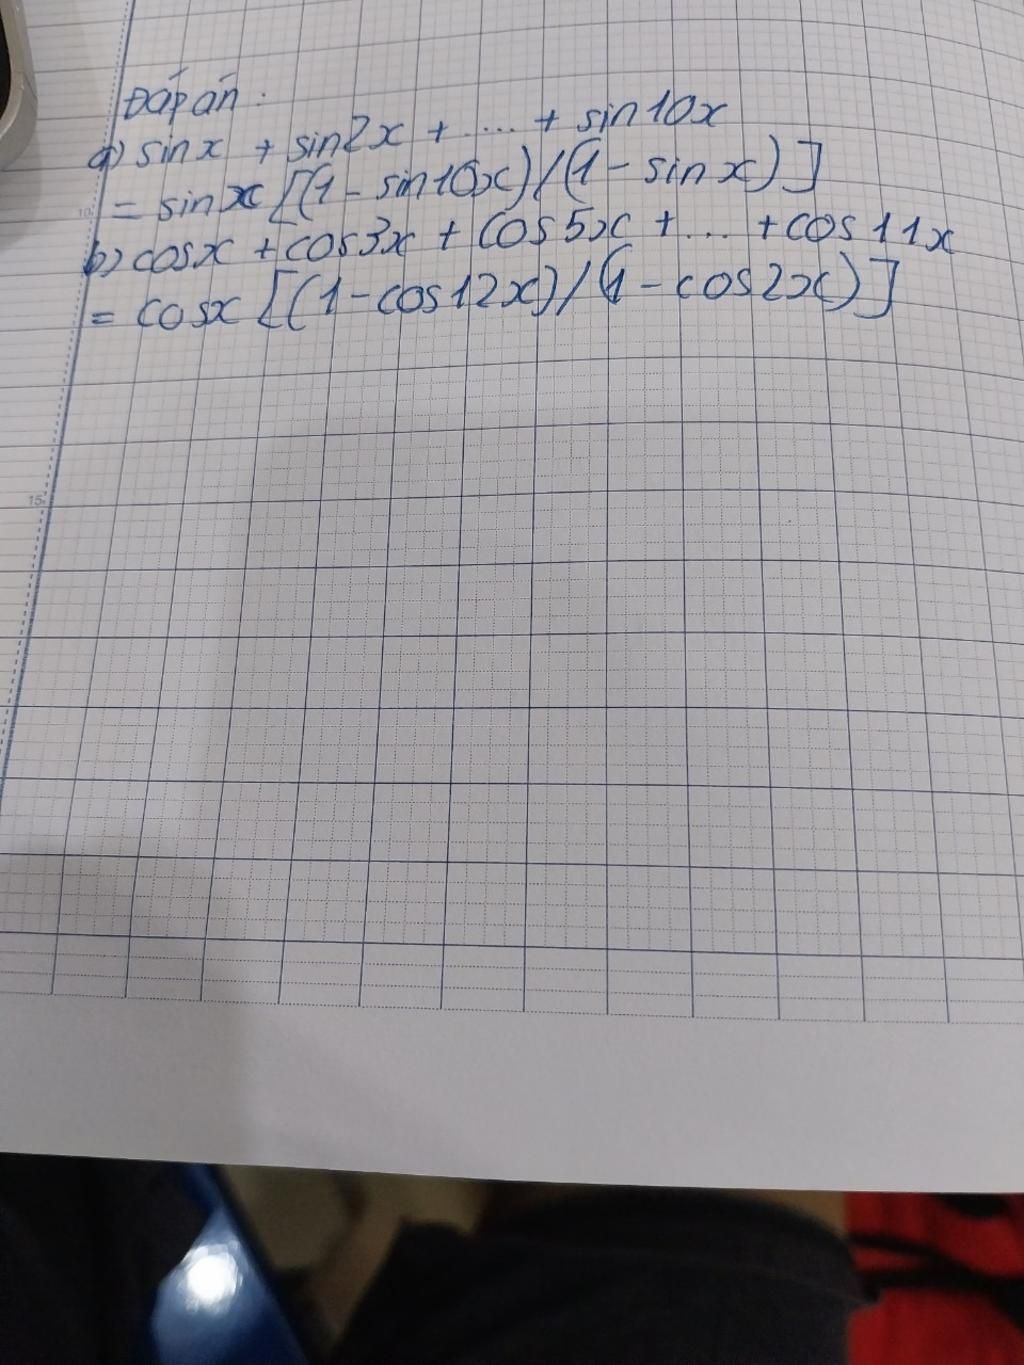 Đáp án:
a) sinx + sin2x + .... + sin10x
= sinx [(1 - sin10x)/(1 - sinx)]
b) cosx + cos3x + cos5x + ... + cos11x
= cosx [(1 - cos12x)/(1 - cos2x)]
10
15